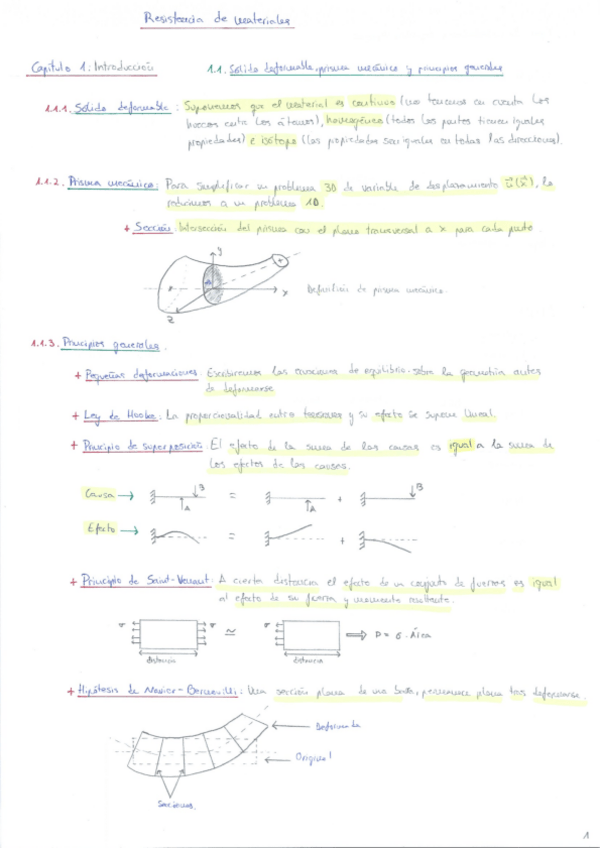 Resistencia de materiales
Capítulo 1: Introducción 1.1. Sólido deformable, prisma mecánico y principios generales
1.1.1. Sólido deformable: Suponemos que el material es continuo (no tenemos en cuenta los
huecos entre los átomos), homogéneo (todas las partes tienen iguales
propiedades) e isótopo (las propiedades son iguales en todas las direcciones).
1.1.2. Prisma mecánico: Para simplificar un problema 3D de variable de desplazamiento u(x), lo
reducimos a un problema 1D.
+ Sección: Intersección del prisma con el plano transversal a x para cada punto.
y
x
z
Definición de prisma mecánico.
1.1.3. Principios generales.
+ Pequeñas deformaciones: Escribiremos las ecuaciones de equilibrio sobre la geometría antes
de deformarse
+ Ley de Hooke: La proporcionalidad entre tensiones y su efecto se supone lineal.
+ Principio de superposición: El efecto de la suma de las causas es igual a la suma de
los efectos de las causas.
Causa → B A = A + B
Efecto → = +
+ Principio de Saint-Venant: A cierta distancia el efecto de un conjunto de fuerzas es igual
al efecto de su fuerza y momento resultante.
σ σ ≃ σ σ ⇒ P = σ · Área
distancia distancia
+ Hipótesis de Navier-Bernouilli: Una sección plana de una barra, permanece plana tras deformarse.
Deformada
Original
Secciones.
1